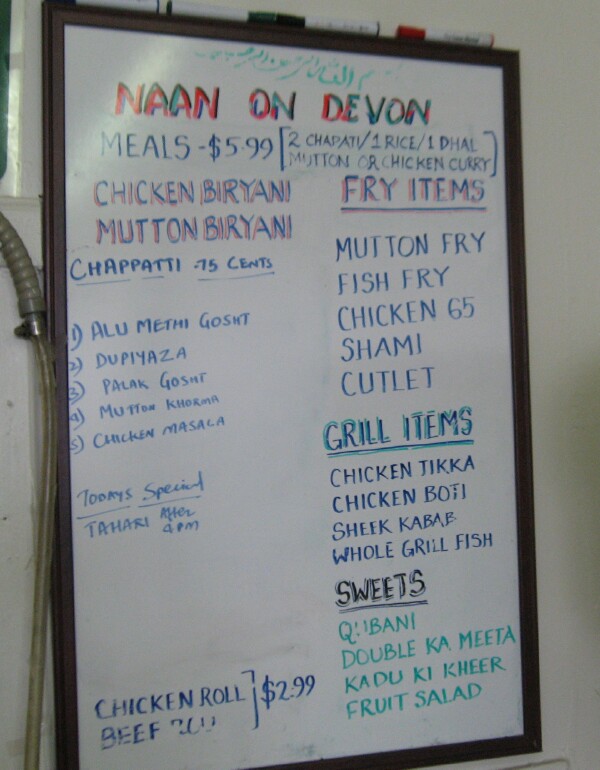 NAAN ON DEVON
MEALS - $5.99 [2 CHAPATI/1 RICE/1 DHAL
MUTTON OR CHICKEN CURRY]
CHICKEN BIRYANI
MUTTON BIRYANI
CHAPPATTI .75 CENTS
1) ALU METHI GOSHT
2) DUPIYAZA
3) PALAK GOSHT
4) MUTTON KHORMA
5) CHICKEN MASALA
TODAYS Special
TAHARI After
4 PM
CHICKEN ROLL] $2.99
BEEF
FRY ITEMS
MUTTON FRY
FISH FRY
CHICKEN 65
SHAMI
CUTLET
GRILL ITEMS
CHICKEN TIKKA
CHICKEN BOTI
SHEEK KABAB
WHOLE GRILL FISH
SWEETS
QUBANI
DOUBLE KA MEETA
KADU KI KHEER
FRUIT SALAD